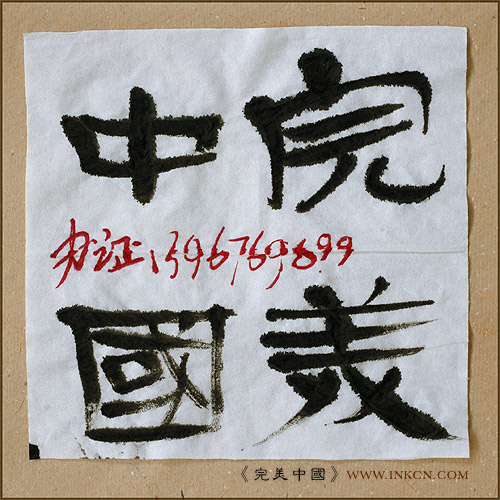 完美
中國
办证:1396769899
《完美中國》WWW.INKCN.COM